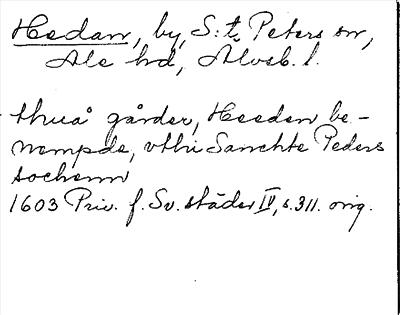 Hedan, by, S:t Peters sn,
Ale hd, Älvsb. l.
thuå gårder, Heeden be-
nempde, vthi Sanchte Peders
sochenn
1603 Priv. f. Sv. städer IV, s. 311. orig.